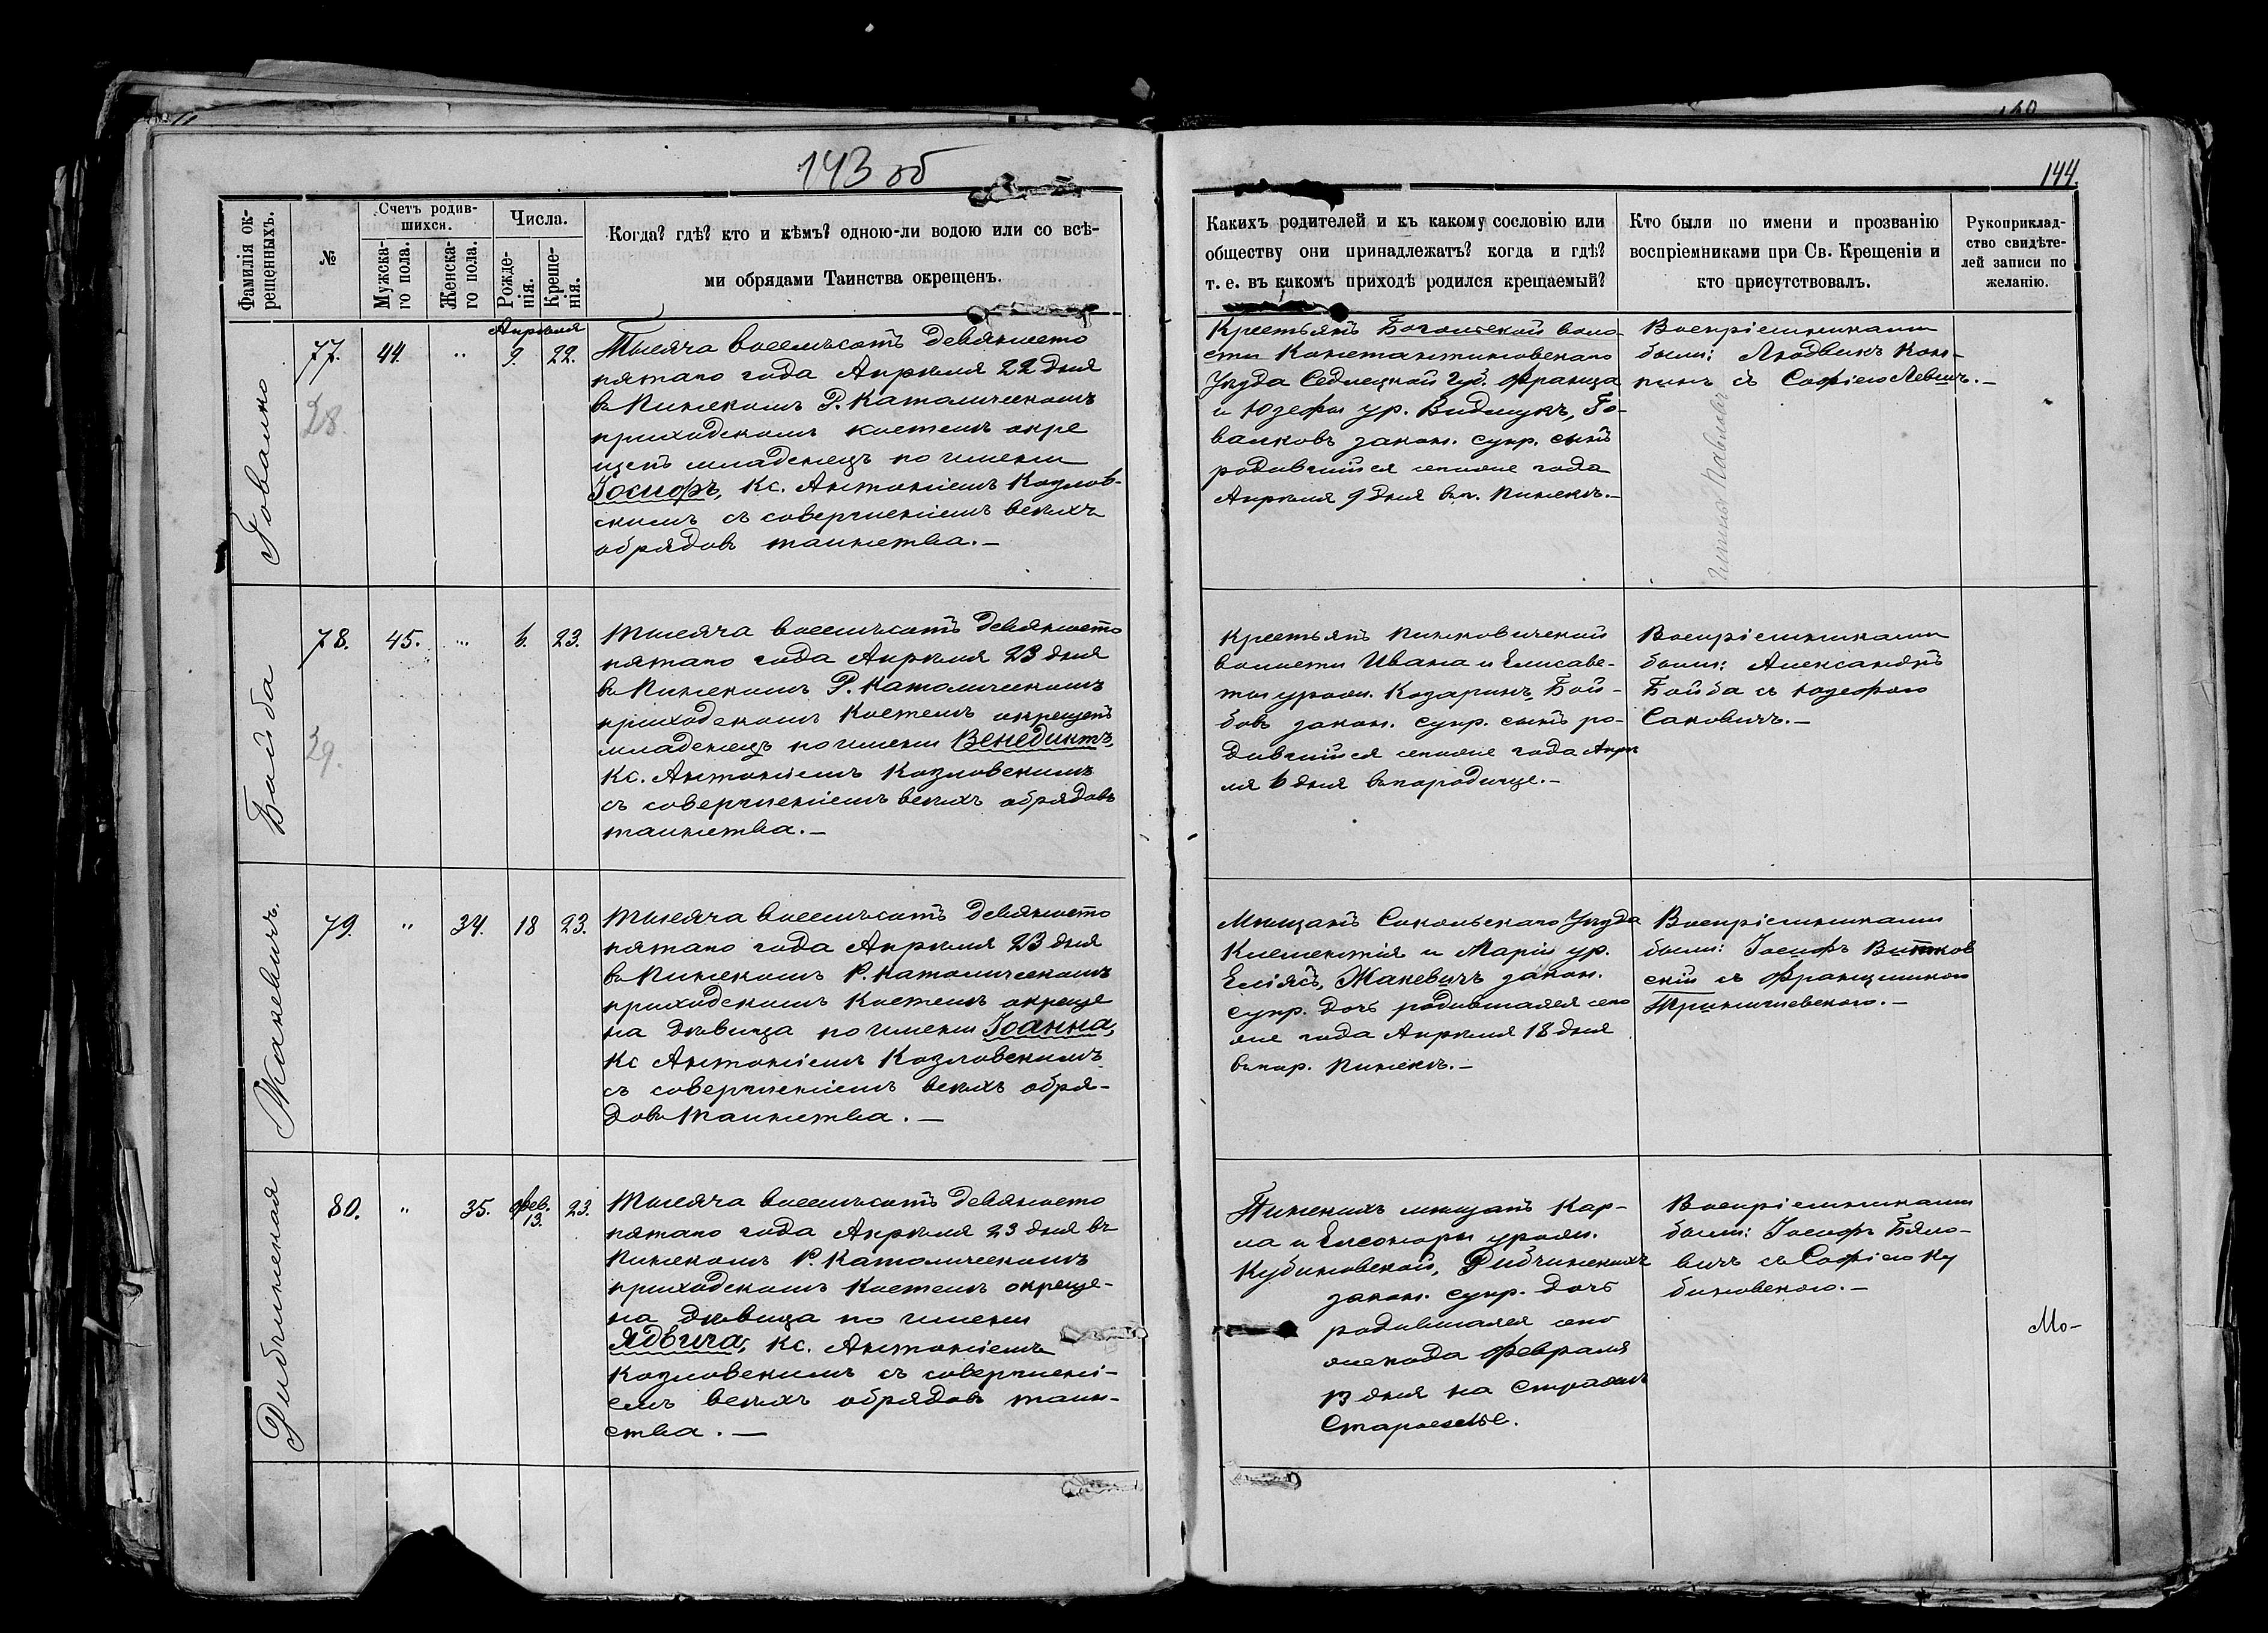 143 об
144.
Фамилія ок-
рещенныхъ.
№
Счетъ родив-
шихся.
Мужска-
го пола.
Женска-
го пола.
Числа.
Рожде-
нія.
Креще-
нія.
Когда? гдѣ? кто и кѣмъ? одною-ли водою или со всѣ-
ми обрядами Таинства окрещенъ.
Какихъ родителей и къ какому сословію или
обществу они принадлежатъ? когда и гдѣ?
т. е. въ какомъ приходѣ родился крещаемый?
Кто были по имени и прозванію
воспріемниками при Св. Крещеніи и
кто присутствовалъ.
Рукоприклад-
ство свидѣте-
лей записи по
желанію.
Говалко
77.
28.
44.
"
Апрѣля
9.
22.
Тысяча восемьсотъ девяносто
пятаго года Апрѣля 22 дня
въ Пинскомъ Р. Католическомъ
приходскомъ костелѣ окре
щенъ младенецъ по имени
Іосифъ, Кс. Антоніемъ Козлов-
скимъ съ совершеніемъ всѣхъ
обрядовъ таинства.—
Крестьянъ воло-
сти Константиновскаго
Уѣзда Седлецкой Губ. Франца
и Юзефы ур. Видмукъ, Го-
валковъ закон. супр. сынъ
родившійся сегоже года
Апрѣля 9 дня въ г. Пинскѣ.—
Воспріемниками
были: Людвикъ Кон-
пикъ съ Софіею Левичъ.—
Байба
78.
29.
45.
"
6.
23.
Тысяча восемьсотъ девяносто
пятаго года Апрѣля 23 дня
въ Пинскомъ Р. Католическомъ
приходскомъ Костелѣ окрещенъ
младенецъ по имени Венедиктъ,
Кс. Антоніемъ Козловскимъ
съ совершеніемъ всѣхъ обрядовъ
таинства.—
Крестьянъ Пинковичской
волости Ивана и Елисаве-
ты урожд. Козаринъ, Бай-
бовъ закон. супр. сынъ ро-
дившійся сегоже года Апрѣ
ля 6 дня въ пародичѣ.—
Воспріемниками
были: Александръ
Байба съ Юзефою
Саковичъ.—
Жакевичъ.
79.
"
34.
18
23.
Тысяча восемьсотъ девяносто
пятаго года Апрѣля 23 дня
въ Пинскомъ Р. Католическомъ
приходскомъ Костелѣ окреще
на дѣвица по имени Іоанна,
Кс Антоніемъ Козловскимъ
съ совершеніемъ всѣхъ обря-
довъ Таинства.—
Мѣщанъ Сокольскаго Уѣзда
Клементія и Маріи ур.
Еліясъ, Жакевичъ закон.
супр. дочь родившаяся сего
же года Апрѣля 18 дня
въ пар. Пинскѣ.—
Воспріемниками
были: Іосифъ Витков
скій съ Францишкою
Рибчинская
80.
"
35.
Фев.
13.
23.
Тысяча восемьсотъ девяносто
пятаго года Апрѣля 23 дня въ
Пинскомъ Р. Католическомъ
приходскомъ Костелѣ окреще-
на дѣвица по имени
Ядвига, Кс. Антоніемъ
Козловскимъ съ совершені-
емъ всѣхъ обрядовъ таин-
ства.—
Пинскихъ мѣщанъ Кар-
ла и Елеоноры урожд.
Кубиновской, Рибчинскихъ
закон. супр. дочь
родившаяся сего
же года Февраля
13 дня на Стражѣ
Староселье.
Воспріемниками
были: Іосифъ Бяло-
вичъ съ Софіею Ку
биновскою.—
Мо-